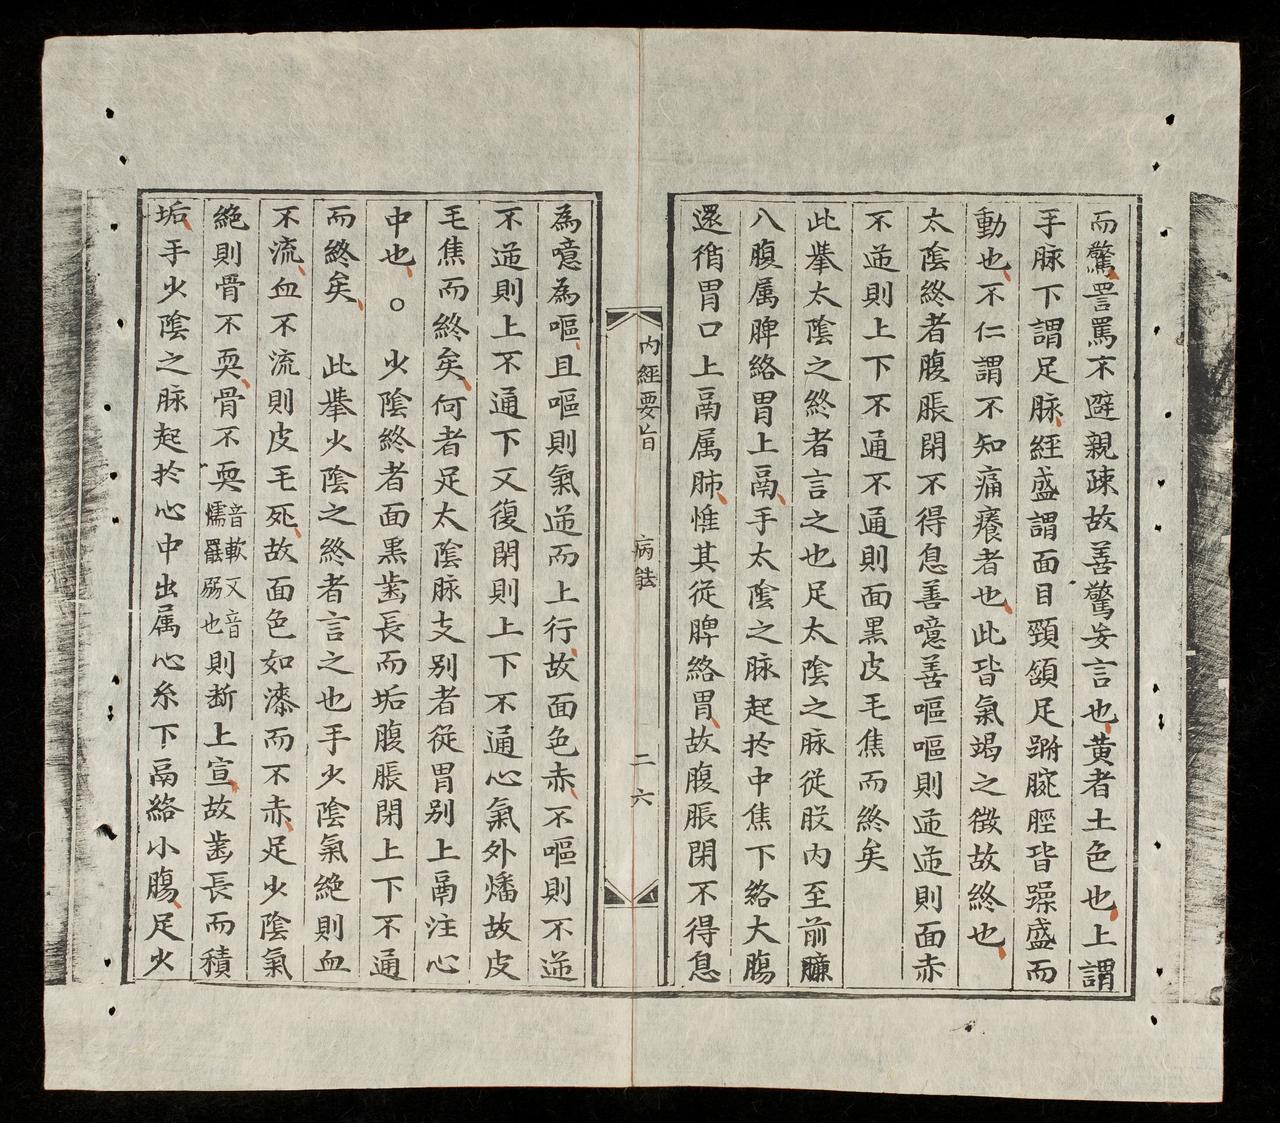 而驚詈罵不避親疎故善驚妄言也黄者土色也上謂
手脉下謂足脉經盛謂面目頸頷足跗腕脛皆躁盛而
動也不仁謂不知痛癢者也此皆氣竭之徴故終也
太陰終者腹脹閉不得息善噫善嘔嘔則逆逆則面赤
不逆則上下不通不通則面黒皮毛焦而終矣
此擧太陰之終者言之也足太陰之脉從股内至前臁
入腹属脾絡胃上鬲手太陰之脉起於中焦下絡大腸
還循胃口上鬲属肺惟其從脾絡胃故腹脹閉不得息
内經要旨 病能 二六
為噫為嘔且嘔則氣逆而上行故面色赤不嘔則不逆
不逆則上不通下又復閉則上下不通心氣外燔故皮
毛焦而終矣何者足太陰脉支别者從胃别上鬲注心
中也○少陰終者面黒歯長而垢腹脹閉上下不通
而終矣 此擧少陰之終者言之也手少陰氣絶則血
不流血不流則皮毛死故面色如漆而不赤足少陰氣
絶則骨不耎骨不耎音軟又音懦罷弱也則断上宣故歯長而積
垢手少陰之脉起於心中出属心系下鬲絡小腸足少